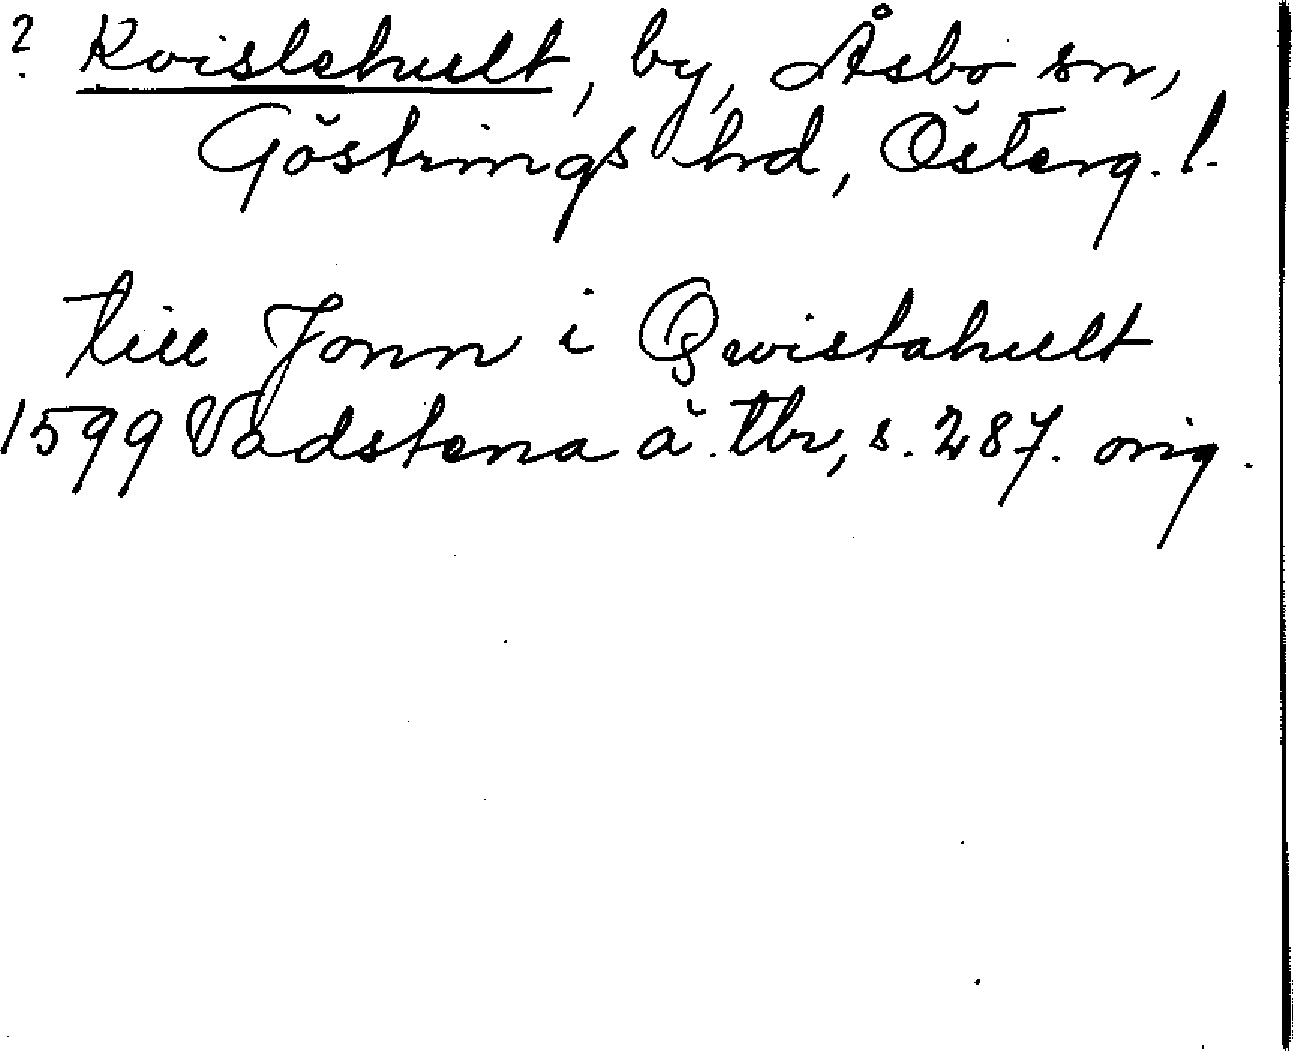 ? Kvislehult, by, Åsbo sn,
Göstrings hd, Österg. l.
till Jonn i Qwistahult
1599 Vadstena ä. tbr, s. 287. orig.